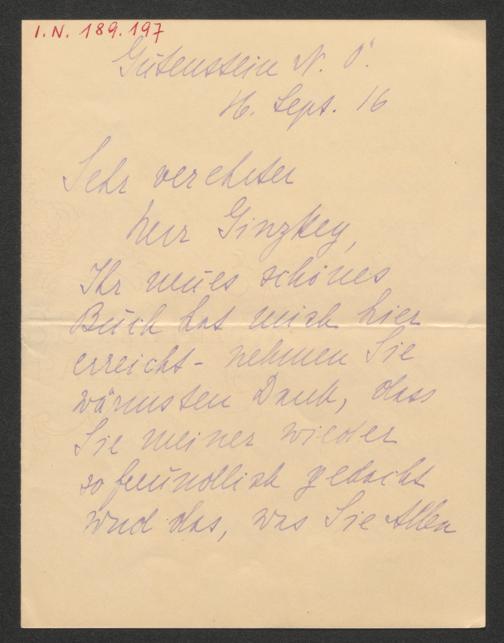 I. N. 189.197
Gutenstein N. Ö.
16. Sept. 16
Sehr verehrter
Herr Ginzkey,
Ihr neues schönes
Buch hat mich hier
erreicht - nehmen Sie
wärmsten Dank, dass
Sie meiner wieder
so freundlich gedacht
und das, was Sie Allen